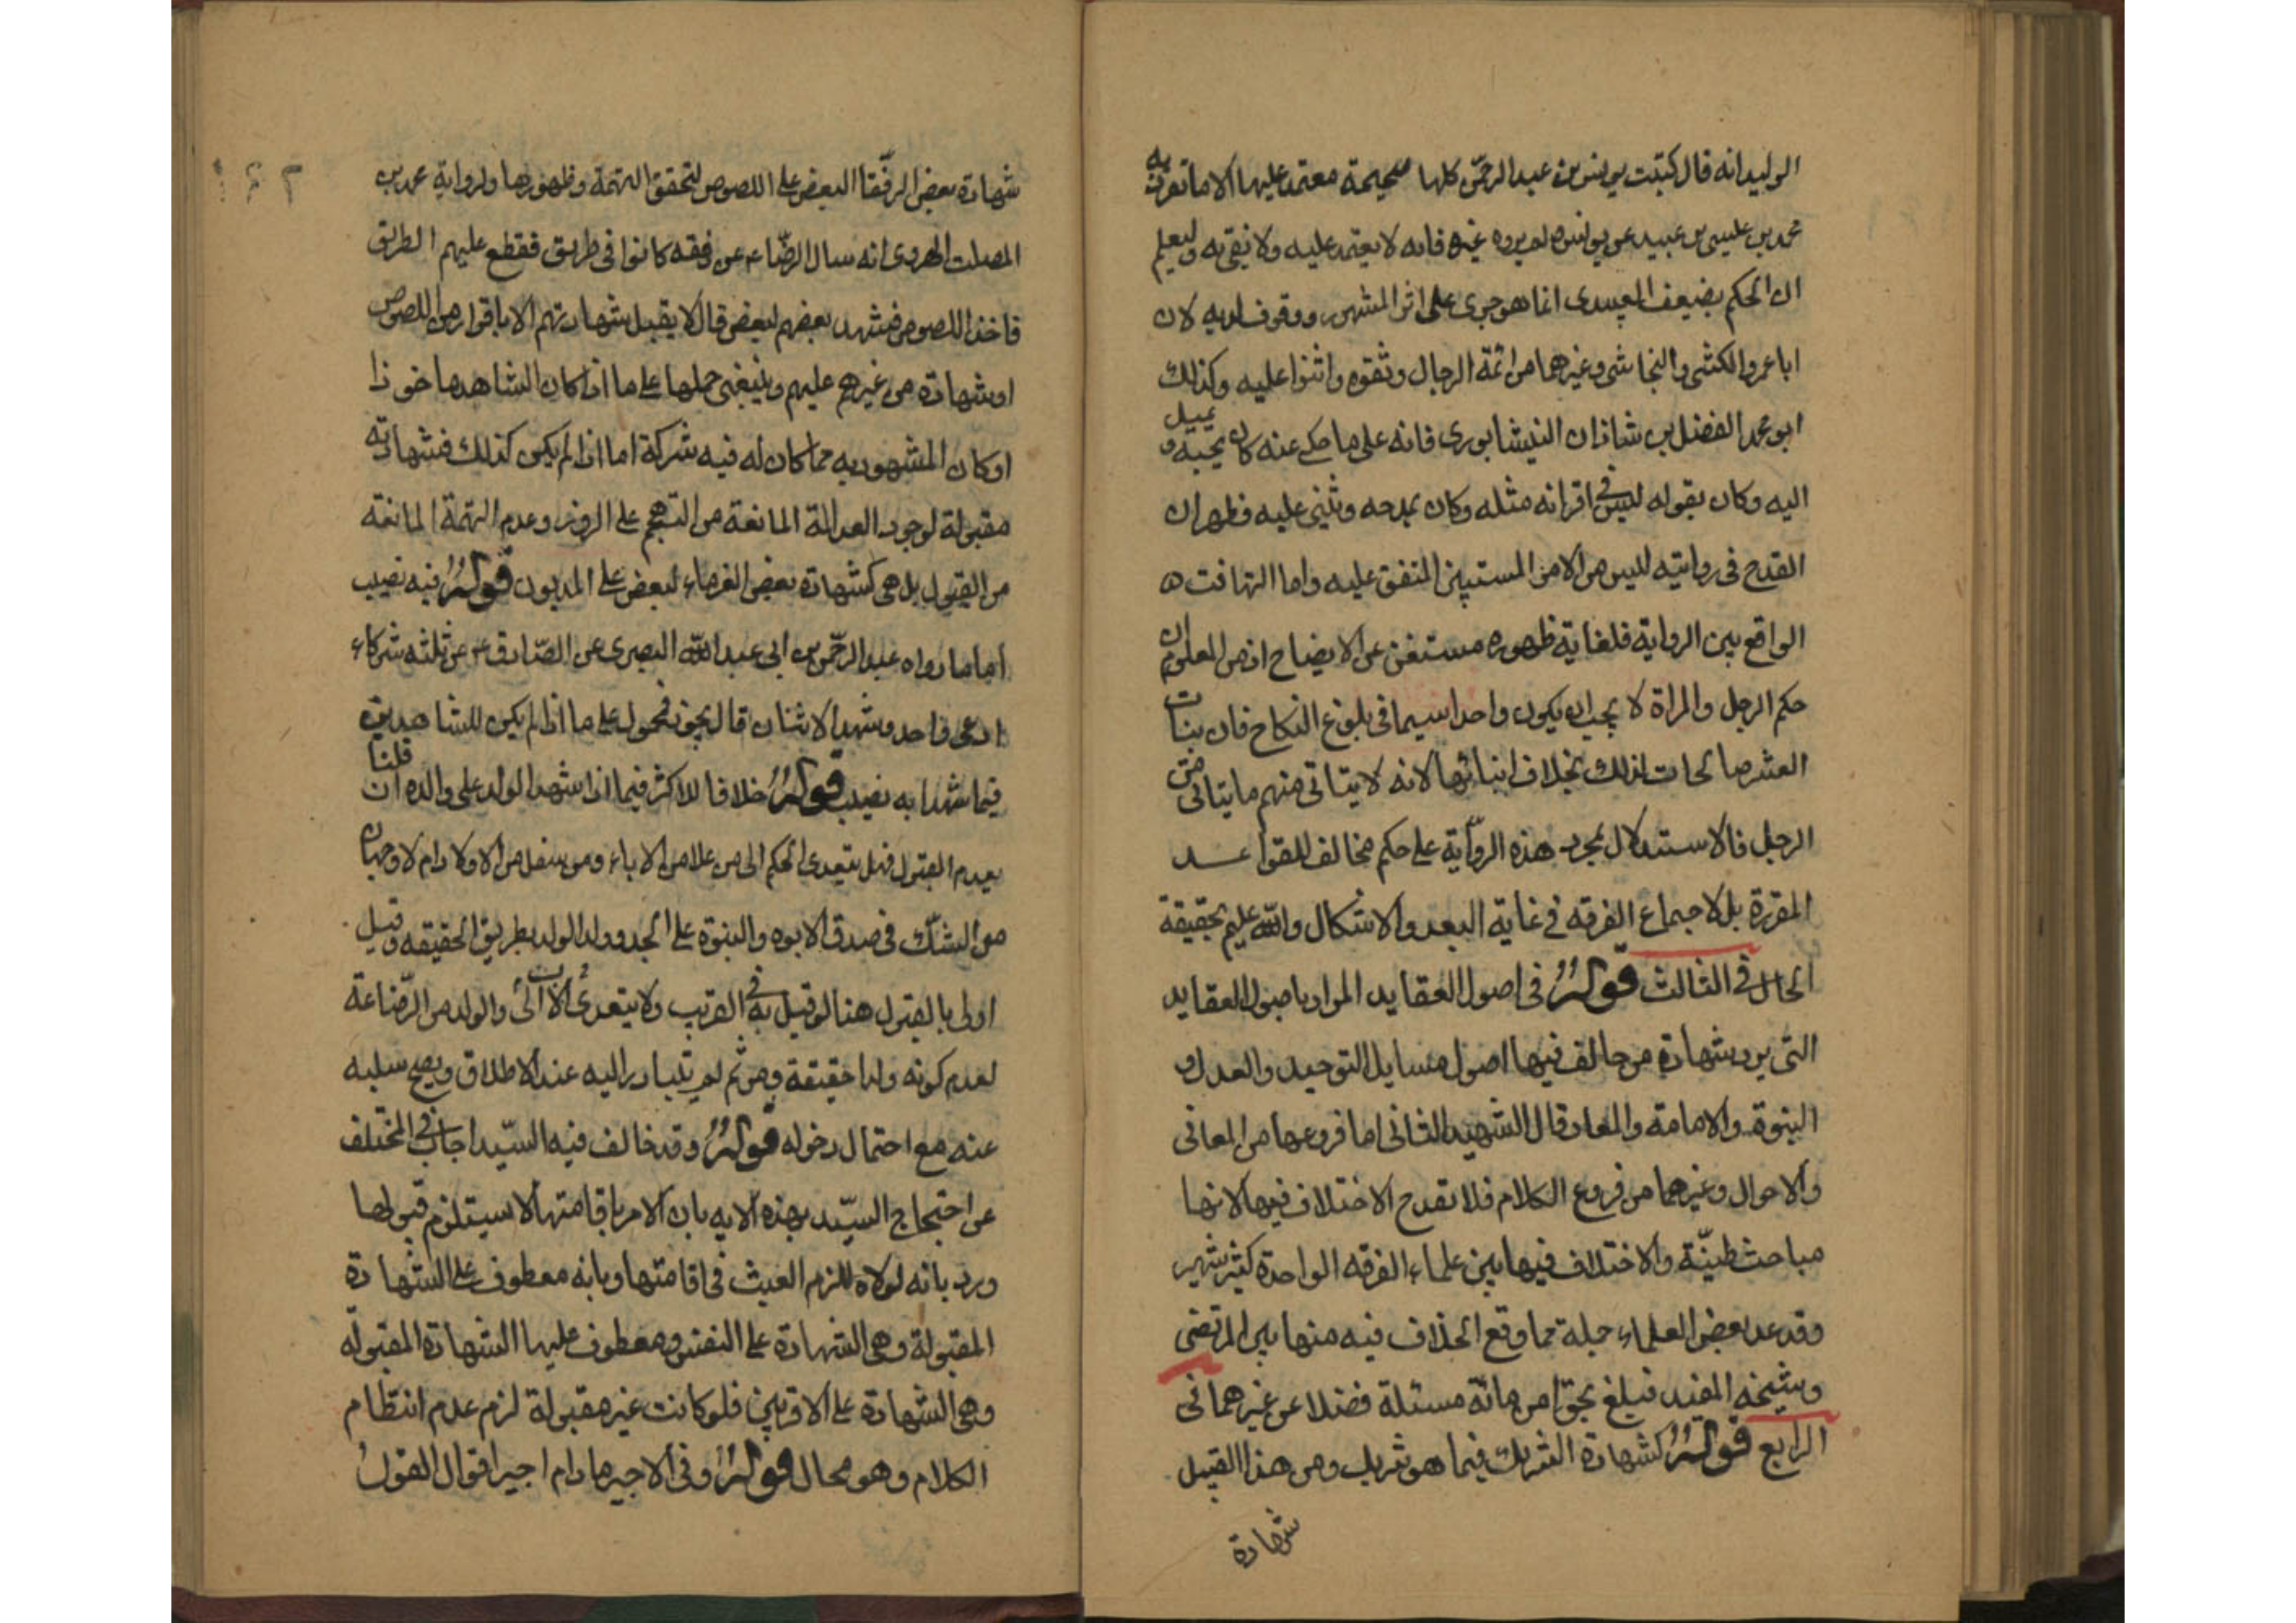 الوليد انه قال كتبت يونس بن عبد الرحمن كلها صحيحة معتمد عليها الا ما تفرد به
محمد بن عليسى بن عبيد عن يونس ولم يروه غيره فانه لا يعتمد عليه ولا يفتى به وليعلم
ان الحكم بضعف العبيدى انما هو جرى على اثر المشهور ووقوف لديه لان
ابا عمرو الكشى والنجاشى وغيرهما من ائمة الرجال وثقوه واثنوا عليه وكذلك
ابو محمد الفضل بن شاذان النيشابورى فانه على ما حكى عنه كان يحبه و يميل
اليه وكان يقوله ليس فى اقرانه مثله وكان يمدحه ويثنى عليه فظهر ان
القدح فى روايته ليس من الامر المستبين المتفق عليه واما التهافت ه
الواقع بين الرواية فلغاية ظهوره مستغن عن الايضاح اذ من المعلوم ان
حكم الرجل والمراة لا يجب ان يكون واحدا سيما فى بلوغ النكاح فان بنات
العشر صالحات لذلك بخلاف ابنائها لانه لا يتاتى منهم ما يتاتى من
الرجل فالاستدلال بمجرد هذه الرواية على حكم مخالف للقواعد
المقررة بل لاجماع الفرقه فى غاية البعد والاشكال والله عليم بحقيقة
الحال فى الثالث قوله فى اصول العقايد المراد باصول العقايد
التى يرد شهادة من خالف فيها اصول مسايل التوحيد والعدل و
النبوة والامامة والمعاد قال الشهيد الثانى اما فروعها من المعانى
والاحوال وغيرهما من فروع الكلام فلا تقدح الاختلاف فيها لانها
مباحث ظنيّة والاختلاف فيها بين علماء الفرقه الواحدة كثير شهير
وقد عد بعض العلماء جملة مما وقع الخلاف فيه منها بين المرتضى
وشيخه المفيد فبلغ نحوا من مائة مسئلة فضلا عن غيرهما فى
الرابع قوله كشهادة الشريك فيما هو شريك ومن هذا القبيل
شهادة
شهادة بعض الرفقا البعض على اللصوص لتحقق التهمة وظهورها ولرواية محمد بن
الصلت الهروى انه سال الرضا ع عن رفقه كانوا فى طريق فقطع عليهم الطريق
فاخذ اللصوص فشهد بعضهم لبعض قال لا يقبل شهادتهم الا باقرار من اللصوص
او شهادة من غيرهم عليهم وينبغى حملها على ما اذا كان الشاهد ماخوذا
او كان المشهود به مما كان له فيه شركة اما اذا لم يكن كذلك فشهادته
مقبولة لوجود العدالة المانعة من التهجم على الزور وعدم التهمة المانعة
من القبول بل هى كشهادة بعض الغرماء لبعض على المديون قوله فيه نصيب
اما ما رواه عبد الرحمن بن ابى عبد الله البصرى عن الصادق ع عن ثلثه شركاء
ادعى واحد وشهد الاثنان قال يجوز فمحمول على ما اذا لم يكن للشاهدين
فيما شهدا به نصيب قوله خلافا للاكثر فيما اذا شهد الولد على والده ان قلنا
بعدم القبول فهل يتعدى الحكم الى من علا من الاباء ومن سفل من الاولاد ام لا وجهان
من الشك فى صدق الابوه والبنوة على الجد وولد الولد بطريق الحقيقه وقيل
اولى بالقبول هنا لو قيل به فى القريب ولا يتعدى الى الاب والولد من الرضاعة
لعدم كونه ولدا حقيقة ومن ثم لم يتبادر اليه عند الاطلاق ويصح سلبه
عنه مع احتمال دخوله قوله وقد خالف فيه السيّد اجاب فى المختلف
عن احتجاج السيّد بهذه الايه بان الامر باقامتها لا يستلزم قبولها
ورد بانه لولاه للزم العبث فى اقامتها وبانه معطوف على الشهادة
المقبولة وهى الشهادة على النفس ومعطوف عليها الشهادة المقبولة
وهى الشهادة على الاقربين فلو كانت غير مقبولة لزم عدم انتظام
الكلام وهو محال قوله وفى الاجير ما دام اجيرا قوال القول